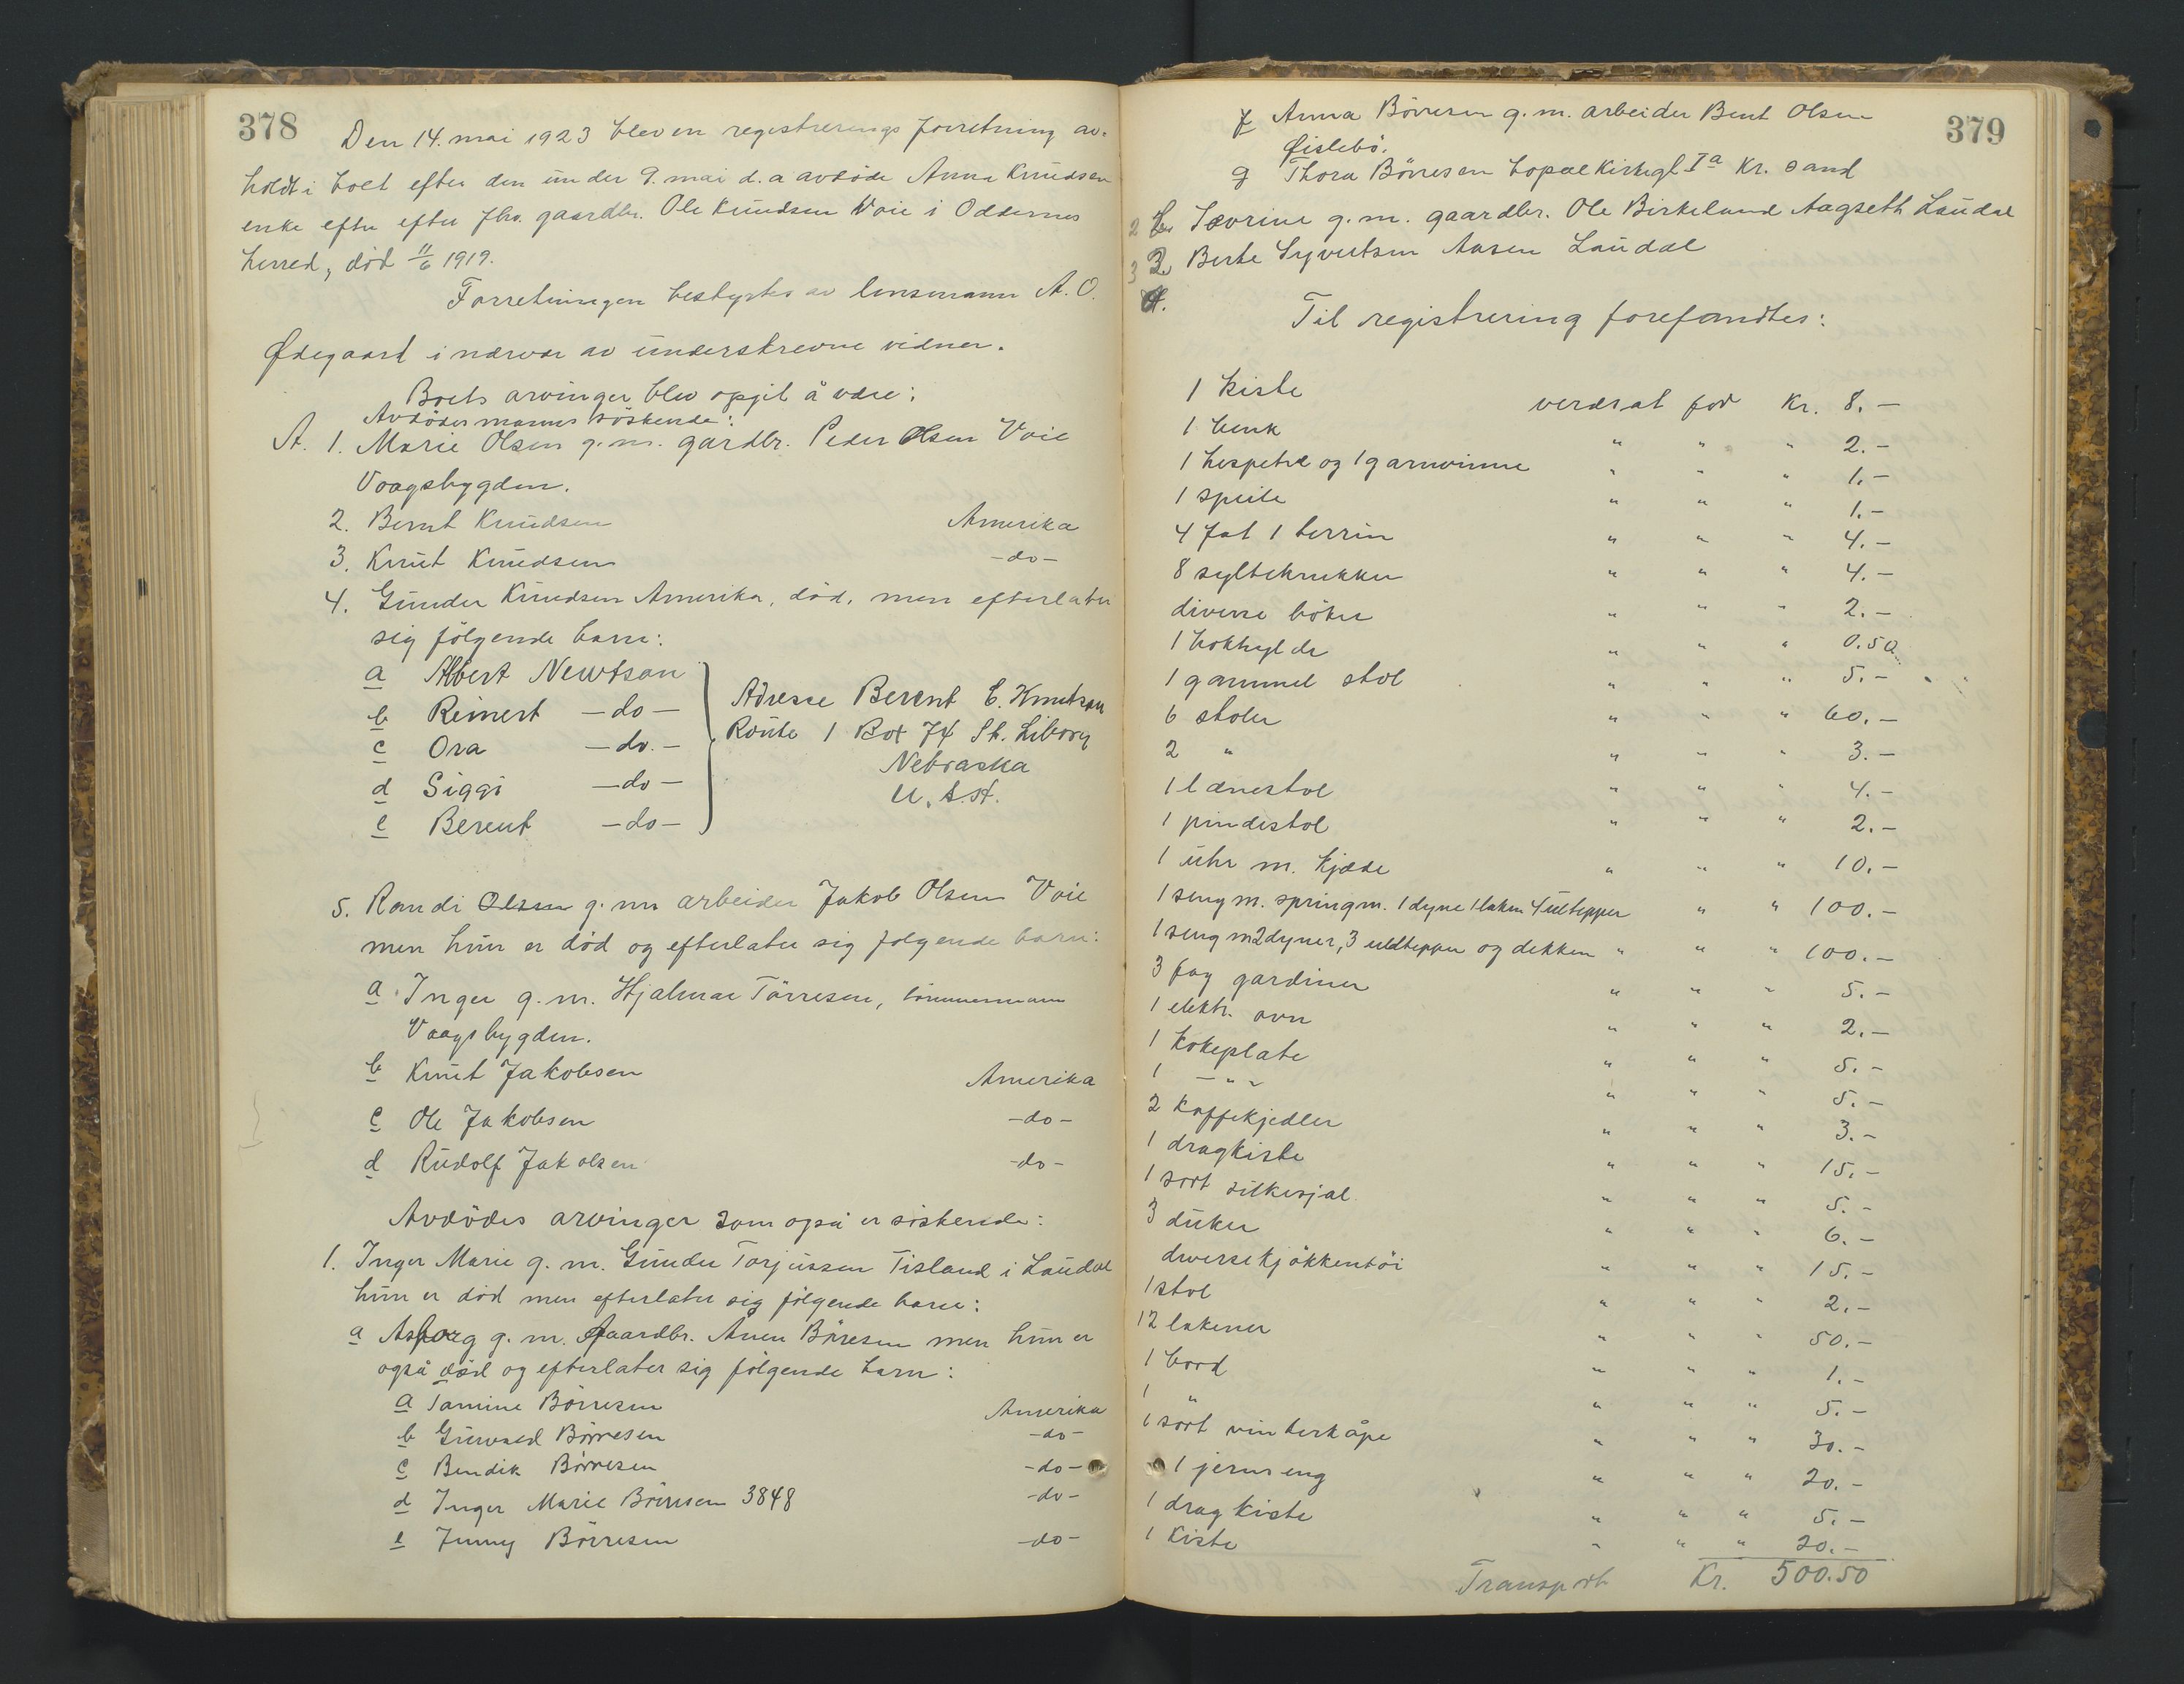 378
Den 14. mai 1923 blev en registrerings forretning av-
holdt i boet efter den under 9. mai d.a avdøde Anna Knudsen
enke efter efter fhv. gaardbr. Ole Knudsen Voie i Oddernes
herred, död 11/6 1919.
Forretningen bestyrtes av lensmann A. O.
Ødegaard i nærvær av underskrevne vidner.
Boets arvinger blev opgit å være:
Avdödes manns söskende:
A. 1. Marie Olsen g. m. gardbr. Peder Olsen Voie
Vaagsbygden.
2. Bernt Knudsen Amerika
3. Knut Knudsen -do-
4. Gunder Knudsen Amerika, död, men efterlater
sig fölgende barn:
a Albert Newtson
b Reinert -do-
c Ora -do.-
d Siggi -do-
e Berent -do-
Adresse Berent C. Knutson
Route 1 Box 74 St. Libory
Nebraska
U.S.A.
5. Randi Olsen g. m. arbeider Jakob Olsen Voie
men hun er död og efterlater sig folgende barn:
a Inger g. m. Hjalmar Törresen, tömmermann
Vaagsbygden.
b Knut Jakobsen Amerika
c Ole Jakobsen -do-
d Rudolf Jakobsen -do-
Avdödes arvinger som også er söskende:
1. Inger Marie g. m. Gunder Torjussen Tisland i Laudal
hun er död men efterlater sig fölgende barn:
a Asborg g. m. Gaardbr. Anen Börresen men hun er
også död og efterlater sig fölgende barn:
a Tamine Börresen Amerika
b Gunvald Börresen -do-
c Bendik Börresen -do-
d Inger Marie Börresen 3848 -do-
e Jenny Börresen -do-
379
f Anna Börresen g. m. arbeider Bent Olsen
Øislebö.
g Thora Börresen Kirkegt Ia Kr. sand
2 Tævrine g. m. gaardbr. Ole Birkeland Aagseth Laudal
3 3. Berte Syvertsen Aasen Laudal
4.
Til registrering forefandtes:
1 kiste verdsat for Kr. 8.-
1 benk " " " 2.-
1 hespetræ og 1 garnvinne " " " 1.-
1 speile " " " 1.-
4 fat 1 terrin " " " 4.-
8 syltekrukker " " " 4.-
diverse böker " " " 2.-
1 bokhylde " " " 0.50
1 gammel stol " " " 5.-
6 stoler " " " 60.-
2 " " " " 3.-
1 lænestol " " " 4.-
1 pindestol " " " 2.-
1 uhr m. kjæde " " " 10.-
1 seng m. springm. 1 dyne 1 laken 4 ultepper " " 100.-
1 seng m 2 dyner, 3 uldtepper og dekken " " " 100.-
3 fag gardiner " " " 5.-
1 elektr. ovn " " " 2.-
1 kokeplate " " " 5.-
1 -"- " " " 5.-
2 kaffekjedler " " " 3.-
1 dragkiste " " " 15.-
1 sort silkesjal " " " 5.-
3 duker " " " 6.-
diverse kjökkentöi " " " 15.-
1 stol " " " 2.-
12 lakener " " " 50.-
1 bord " " " 1.-
1 " " " " 5.-
1 sort vinterkåpe " " " 30.-
1 jernseng " " " 20.-
1 dragkiste " " " 5.-
1 kiste " " " 20.-
Transport Kr. 500.50